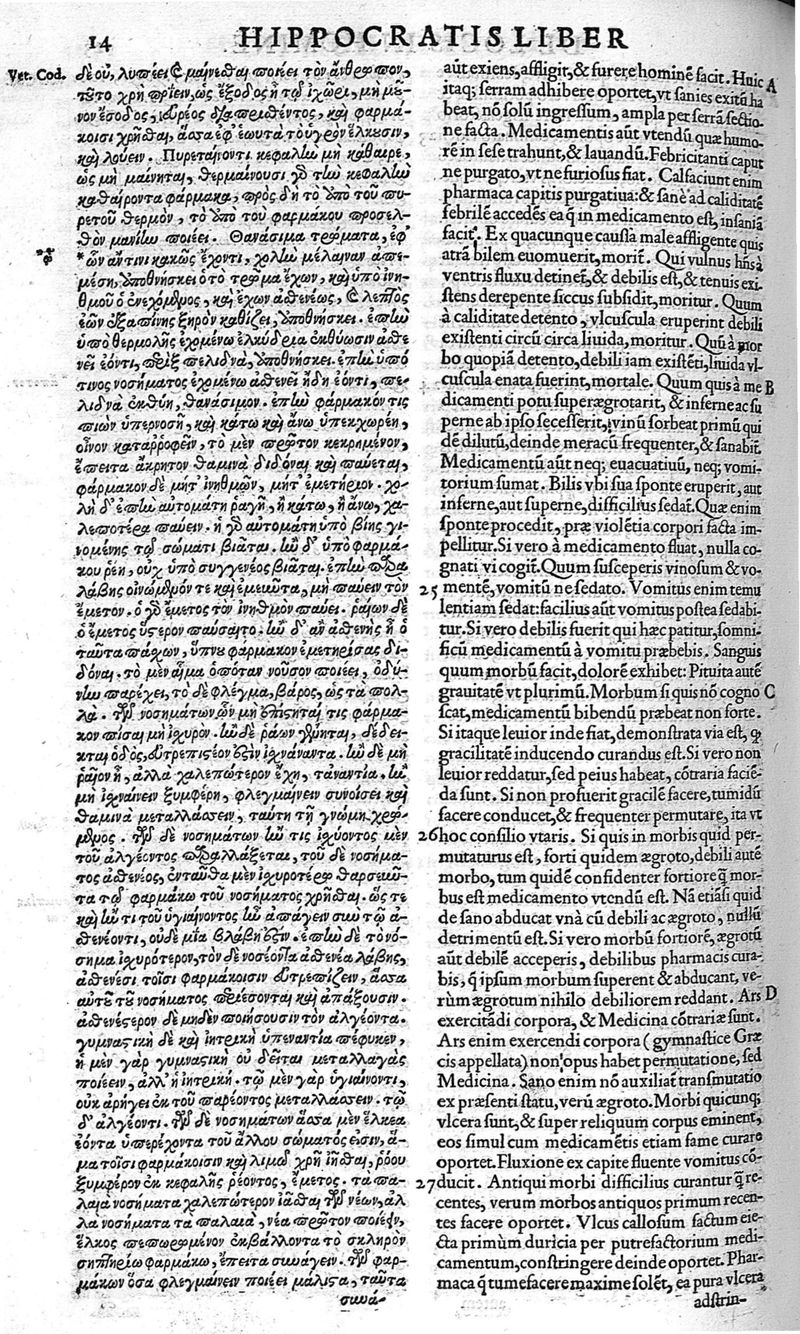 14 HIPPOCRATIS LIBER
Vet. Cod.
δὲ οὐ, λυπέει καὶ μαίνεσθαι ποιέει τὸν ἄνθρωπον,
τοῦτο χρὴ πρίειν, ὡς ἔξοδος ᾖ τῷ ἰχῶρι, μὴ μό-
νον ἔσοδος, εὐρέος διαπρισθέντος, καὶ φαρμά-
κοισι χρῆσθαι, ἅσσα ἐφ' ἑωυτὰ τὸ ὑγρὸν ἕλκουσιν,
καὶ λούειν. Πυρεταίνοντι κεφαλὴν μὴ κάθαιρε,
ὡς μὴ μαίνηται, θερμαίνουσι γὰρ τὴν κεφαλὴν
καθαίροντα φάρμακα, πρὸς δὴ τὸ ὑπὸ τοῦ πυ-
ρετοῦ θερμὸν, τὸ ὑπὸ τοῦ φαρμάκου προσελ-
θὸν μανίην ποιέει. Θανάσιμα τρώματα, ἐφ'
*ὧν ἄν τινι κακῶς ἔχοντι, χολὴν μέλαιναν ἀπε-
μέσῃ, ἀποθνήσκει ὁ τὸ τρῶμα ἔχων, καὶ ὑπὸ ἰνη-
θμοῦ ὁ ἐνεχόμενος, καὶ ἔχων ἀσθενέως, καὶ λεπτὸς
ἐὼν ἐξαπίνης ξηρὸν καθίζει, ἀποθνήσκει. ἐπὴν
ὑπὸ θερμολῆς ἐχομένῳ ἑλκύδρια ἐκθύωσιν ἀσθε
νεῖ ἐόντι, πέριξ πελιδνὰ, ἀποθνήσκει. ἐπὴν ὑπό
τινος νοσήματος ἐχομένῳ ἀσθενεῖ ἤδη ἐόντι, πε-
λιδνὰ ἐκθύῃ, θανάσιμον. ἐπὴν φάρμακόν τις
πιὼν ὑπερνοσῇ, καὶ κάτω καὶ ἄνω ὑπεκχωρέῃ,
οἶνον καταῤῥοφεῖν, τὸ μὲν πρῶτον κεκρημένον,
ἔπειτα ἄκρητον θαμινὰ διδόναι καὶ παύεται,
φάρμακον δὲ μήτ' ἰνηθμῶν, μήτ' ἐμετήριον. χο-
λὴ δ' ἐπὴν αὐτομάτη ῥαγῇ, ἢ κάτω, ἢ ἄνω, χα-
λεποτέρα παύειν. ἡ γὰρ αὐτομάτη ὑπὸ βίης γι-
νομένης τῷ σώματι βιᾶται. ἢν δ' ὑπὸ φαρμά-
κου ῥέῃ, οὐχ ὑπὸ συγγενέος βιᾶται. ἐπὴν παρα-
λάβῃς οἰνωμένον τε καὶ ἐμεῦντα, μὴ παύειν τὸν
ἔμετον. ὁ γὰρ ἔμετος τὸν ἰνηθμὸν παύει. ῥᾴων δὲ
ὁ ἔμετος ὕστερον παύσαιτο. ἢν δ' ἂν ἀσθενὴς ᾖ ὁ
ταῦτα πάσχων, ὕπνου φάρμακον ἐμετηρίσας δι-
δόναι. τὸ μὲν αἷμα ὁπόταν νοῦσον ποιέει, ὀδύ-
νην παρέχει, τὸ δὲ φλέγμα, βάρος, ὡς τὰ πολ-
λά. τῶν νοσημάτων, ὧν μὴ ἐπίστηταί τις φάρμα-
κον πῖσαι μὴ ἰχυρόν. ἢν δὲ ῥᾴων γένηται, δέδει-
κται ὁδὸς, εὐτρεπιστέον ἐστὶν ἰχνάναντα. ἢν δὲ μὴ
ῥᾷον ᾖ, ἀλλὰ χαλεπώτερον ἔχῃ, τἀναντία. ἢν
μὴ ἰχναίνειν ξυμφέρῃ, φλεγμαίνειν συνοίσει καὶ
θαμινὰ μεταλλάσσειν, ταύτῃ τῇ γνώμῃ χρεό-
μενος. τῶν δὲ νοσημάτων ἢν τις ἰχύοντος μὲν
τοῦ ἀλγέοντος παραλλάξεται, τοῦ δὲ νοσήμα-
τος ἀσθενέος, ἐνταῦθα μὲν ἰχυροτέρῳ θαρσεῦν-
τα τῷ φαρμάκῳ τοῦ νοσήματος χρῆσθαι. ὥς τε
καὶ ἤν τι τοῦ ὑγιαίνοντος ἢν ἀπάγειν σὺν τῷ ἀ-
σθενέοντι, οὐδὲ μία βλάβη ἐστίν. ἐπὴν δὲ τὸ νό-
σημα ἰχυρότερον, τὸν δὲ νοσέοντα ἀσθενέα λάβῃς,
ἀσθενέσι τοῖσι φαρμάκοισιν εὐτρεπίζειν, ἅσσα
αὐτοῦ τοῦ νοσήματος περιέσονται καὶ ἀπάξουσιν.
ἀσθενέστερον δὲ μηδὲν ποιήσουσιν τὸν ἀλγέοντα.
γυμναστικὴ δὲ καὶ ἰητρικὴ ὑπεναντία πέφυκεν,
ἡ μὲν γὰρ γυμναστικὴ οὐ δεῖται μεταλλαγὰς
ποιέειν, ἀλλ' ἡ ἰητρική. τῷ μὲν γὰρ ὑγιαίνοντι,
οὐκ ἀρήγει ἐκ τοῦ παρέοντος μεταλλάσσειν. τῷ
δ' ἀλγέοντι. τῶν δὲ νοσημάτων ἅσσα μὲν ἕλκεα
ἐόντα ὑπερέχοντα τοῦ ἄλλου σώματός εἰσιν, ἅ-
μα τοῖσι φαρμάκοισιν καὶ λιμῷ χρὴ ἰῆσθαι, ῥόου
ξυμφέρον ἐκ κεφαλῆς ῥέοντος, ἔμετος. τὰ πα-
λαιὰ νοσήματα χαλεπώτερον ἰᾶσθαι τῶν νέων, ἀλ
λὰ νοσήματα τὰ παλαιὰ, νέα πρῶτον ποιέειν,
ἕλκος πεπωρωμένον ἐκβάλλοντα τὸ σκληρὸν
σηπτηρίῳ φαρμάκῳ, ἔπειτα συνάγειν. τῶν φαρ-
μάκων ὅσα φλεγμαίνειν ποιέει μάλιστα, ταῦτα
συνά-
aūt exiens, affligit, & furere hominē facit. Huic A
itaq; serram adhibere oportet, vt sanies exitū ha
beat, nō solū ingressum, ampla per serrā sectio-
ne facta. Medicamentis aūt vtendū quæ humo-
rē in sese trahunt, & lauandū. Febricitanti caput
ne purgato, vt ne furiosus fiat. Calfaciunt enim
pharmaca capitis purgatiua: & sanè ad caliditatē
febrilē accedēs ea q̃ in medicamento est, insaniā
facit. Ex quacunque caussa male affligente quis
atrā bilem euomuerit, moritꝛ. Qui vulnus hñs à
ventris fluxu detinetꝛ, & debilis est, & tenuis exi-
stens derepente siccus subsidit, moritur. Quum
à caliditate detento, vlcuscula eruperint debili
existenti circū circa liuida, moritur. Quū à mor
bo quopiā detento, debili iam existēti, liuida vl-
cuscula enata fuerint, mortale. Quum quis à me B
dicamenti potu superægrotarit, & inferne ac su
perne ab ipso secesserit, vinū sorbeat primū qui
dē dilutū, deinde meracū frequenter, & sanabitꝛ.
Medicamentū aūt neq; euacuatiuū, neq; vomi-
torium sumat. Bilis vbi sua sponte eruperit, aut
inferne, aut superne, difficilius sedatꝛ. Quæ enim
sponte procedit, præ violētia corpori facta im-
pellitur. Si vero à medicamento fluat, nulla co-
gnati vi cogitꝛ. Quum susceperis vinosum & vo-
25 mentē, vomitū ne sedato. Vomitus enim temu
lentiam sedat: facilius aūt vomitus postea sedabi-
tur. Si vero debilis fuerit qui hæc patitur, somni-
ficū medicamentū à vomitu præbebis. Sanguis
quum morbū facit, dolorē exhibet: Pituita autē
grauitatē vt plurimū. Morbum si quis nō cogno C
scat, medicamentū bibendū præbeat non forte.
Si itaque leuior inde fiat, demonstrata via est, q̃
gracilitatē inducendo curandus est. Si vero non
leuior reddatur, sed peius habeat, cōtraria faciē-
da sunt. Si non profuerit gracilē facere, tumidū
facere conducet, & frequenter permutare, ita vt
26 hoc consilio vtaris. Si quis in morbis quid per-
mutaturus est, forti quidem ægroto, debili autē
morbo, tum quidē confidenter fortiore q̃ mor-
bus est medicamento vtendū est. Nā etiāsi quid
de sano abducat vnà cū debili ac ægroto, nullū
detrimentū est. Si vero morbū fortiorē, ægrotū
aūt debilē acceperis, debilibus pharmacis cura-
bis, q̃ ipsum morbum superent & abducant, ve-
rùm ægrotum nihilo debiliorem reddant. Ars D
exercitādi corpora, & Medicina cōtrariæ sunt.
Ars enim exercendi corpora (gymnastice Græ
cis appellata) non opus habet permutatione, sed
Medicina. Sano enim nō auxiliatꝛ transmutatio
ex præsenti statu, verū ægroto. Morbi quicunq;
vlcera sunt, & super reliquum corpus eminent,
eos simul cum medicamētis etiam fame curare
oportet. Fluxione ex capite fluente vomitus cō-
27 ducit. Antiqui morbi difficilius curantur q̃ re-
centes, verum morbos antiquos primum recen-
tes facere oportet. Vlcus callosum factum eie-
cta primùm duricia per putrefactorium medi-
camentum, constringere deinde oportet. Phar-
maca q̃ tumefacere maxime solēt, ea pura vlcera
adstrin-